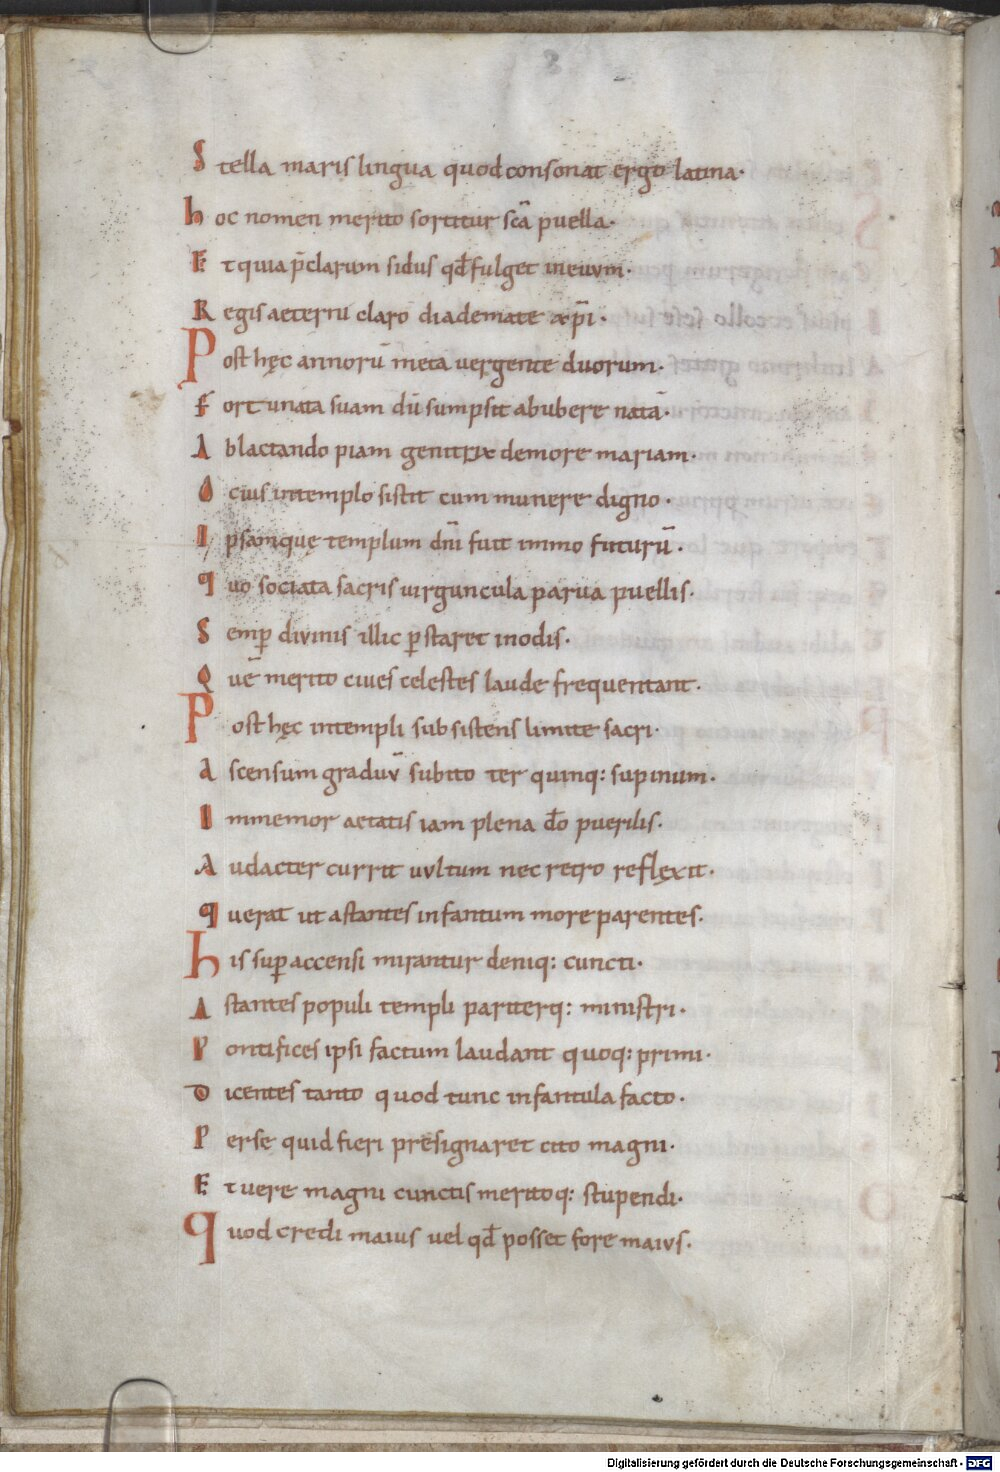 8
Stella maris lingua quod consonat ergo latina·
hoc nomen merito sortitur scā puella·
Et quia p̄clarum sidus qđ fulget in ęuvm·
Regis aeternū claro diademate xp̄i·
Post hęc annorū meta vergente duorum·
fortunata suam dū sumpsit ab ubere natā·
Ablactando piam genitrix de more mariam·
Ocius in templo sistit cum munere digno·
Ipsamque templum dn̄i fuit immo futurū·
quo sociata sacris virguncula parva puellis·
Semp̄ divinis illic p̄staret in odis·
Quē merito cives celestes laude frequentant·
Post hęc in templi subsistens limite sacri·
Ascensum graduv̄ subito ter quinq: supinum·
Inmemor aetatis iam plena dō puerilis·
Audacter currit uvltum nec retro reflęxit·
querat ut astantes infantum more parentes·
his sup̄ accensi mirantur deniq: cuncti·
Astantes populi templi pariterq: ministri·
Pontifices ipsi factum laudant quoq: primi·
Dicentes tanto quod tunc infantula facto·
Per se quid fieri presignaret cito magni·
Et vere magni cunctis meritoq: stupendi·
quod credi maius vel qđ posset fore maivs·
Digitalisierung gefördert durch die Deutsche Forschungsgemeinschaft - DFG